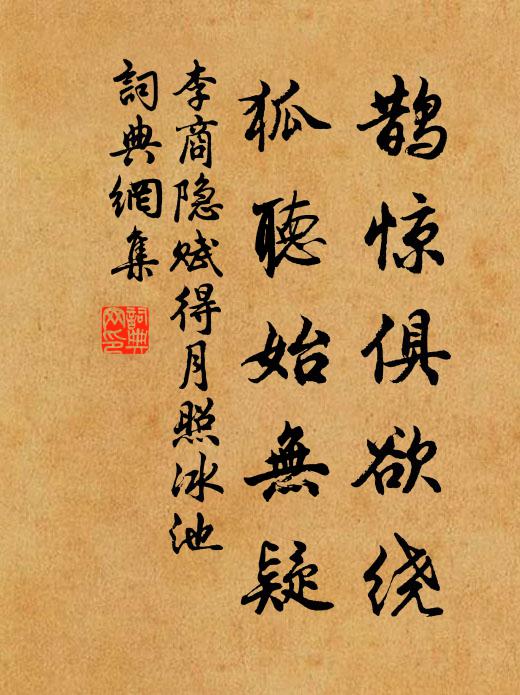 鹊惊俱欲绕
狐聽始無疑
李商隐赋得月照冰池
詞典網集
詞典網印